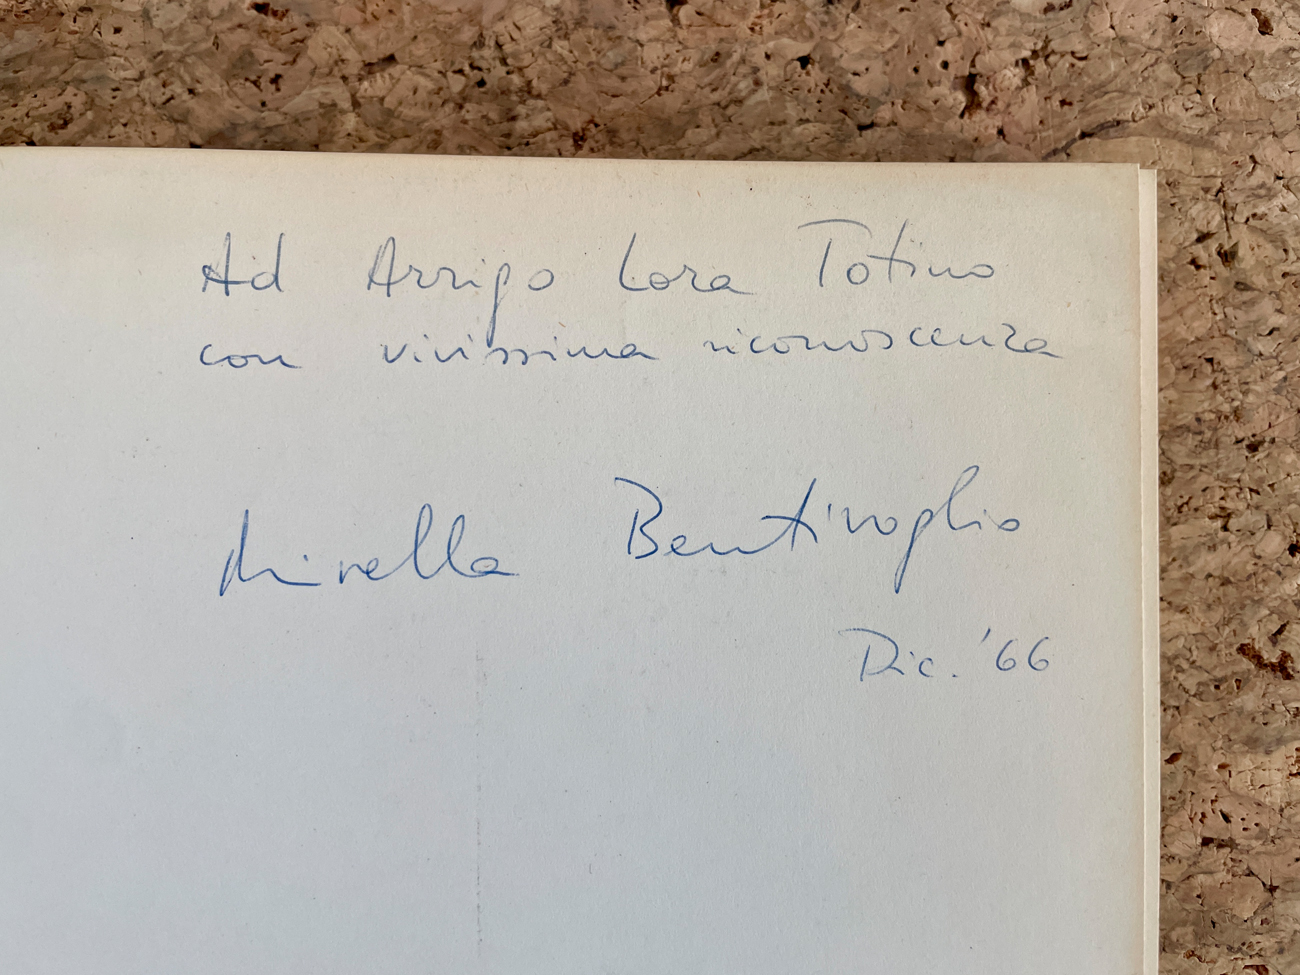 Ad Arrigo Lora Totino
con vivissima riconoscenza
Mirella Bentivoglio
Dic. '66